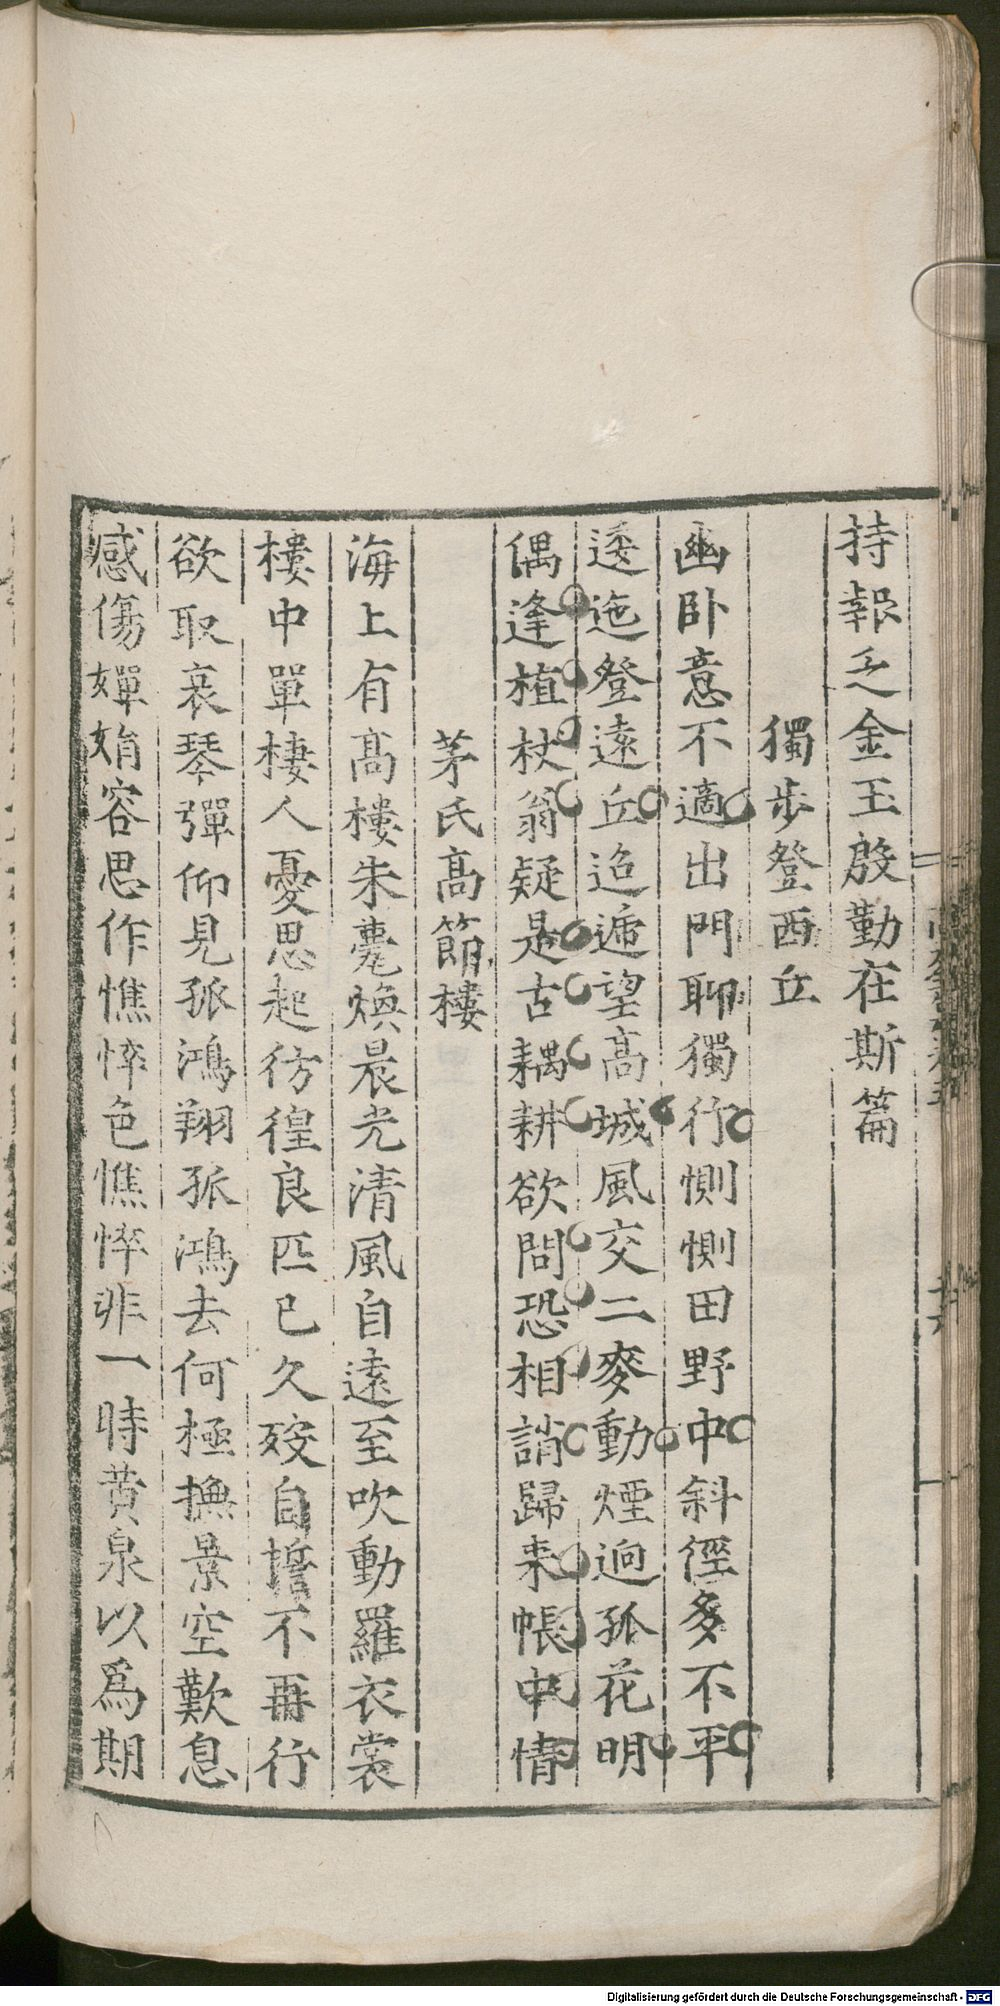 持報乏金玉殷勤在斯篇
獨步登西丘
幽卧意不適出門聊獨行惻惻田野中斜徑多不平
逶迤登遠丘迢遞望高城風交二麥動煙迥孤花明
偶逢植杖翁疑是古耦耕欲問恐相誚歸來悵中情
茅氏高節樓
海上有高樓朱甍煥晨光清風自遠至吹動羅衣裳
樓中單棲人憂思起彷徨良匹已久歿自誓不再行
欲取哀琴彈仰見孤鴻翔孤鴻去何極撫景空歎息
感傷嬋娟容思作憔悴色憔悴非一時黄泉以爲期
Digitalisierung gefördert durch die Deutsche Forschungsgemeinschaft - DFG